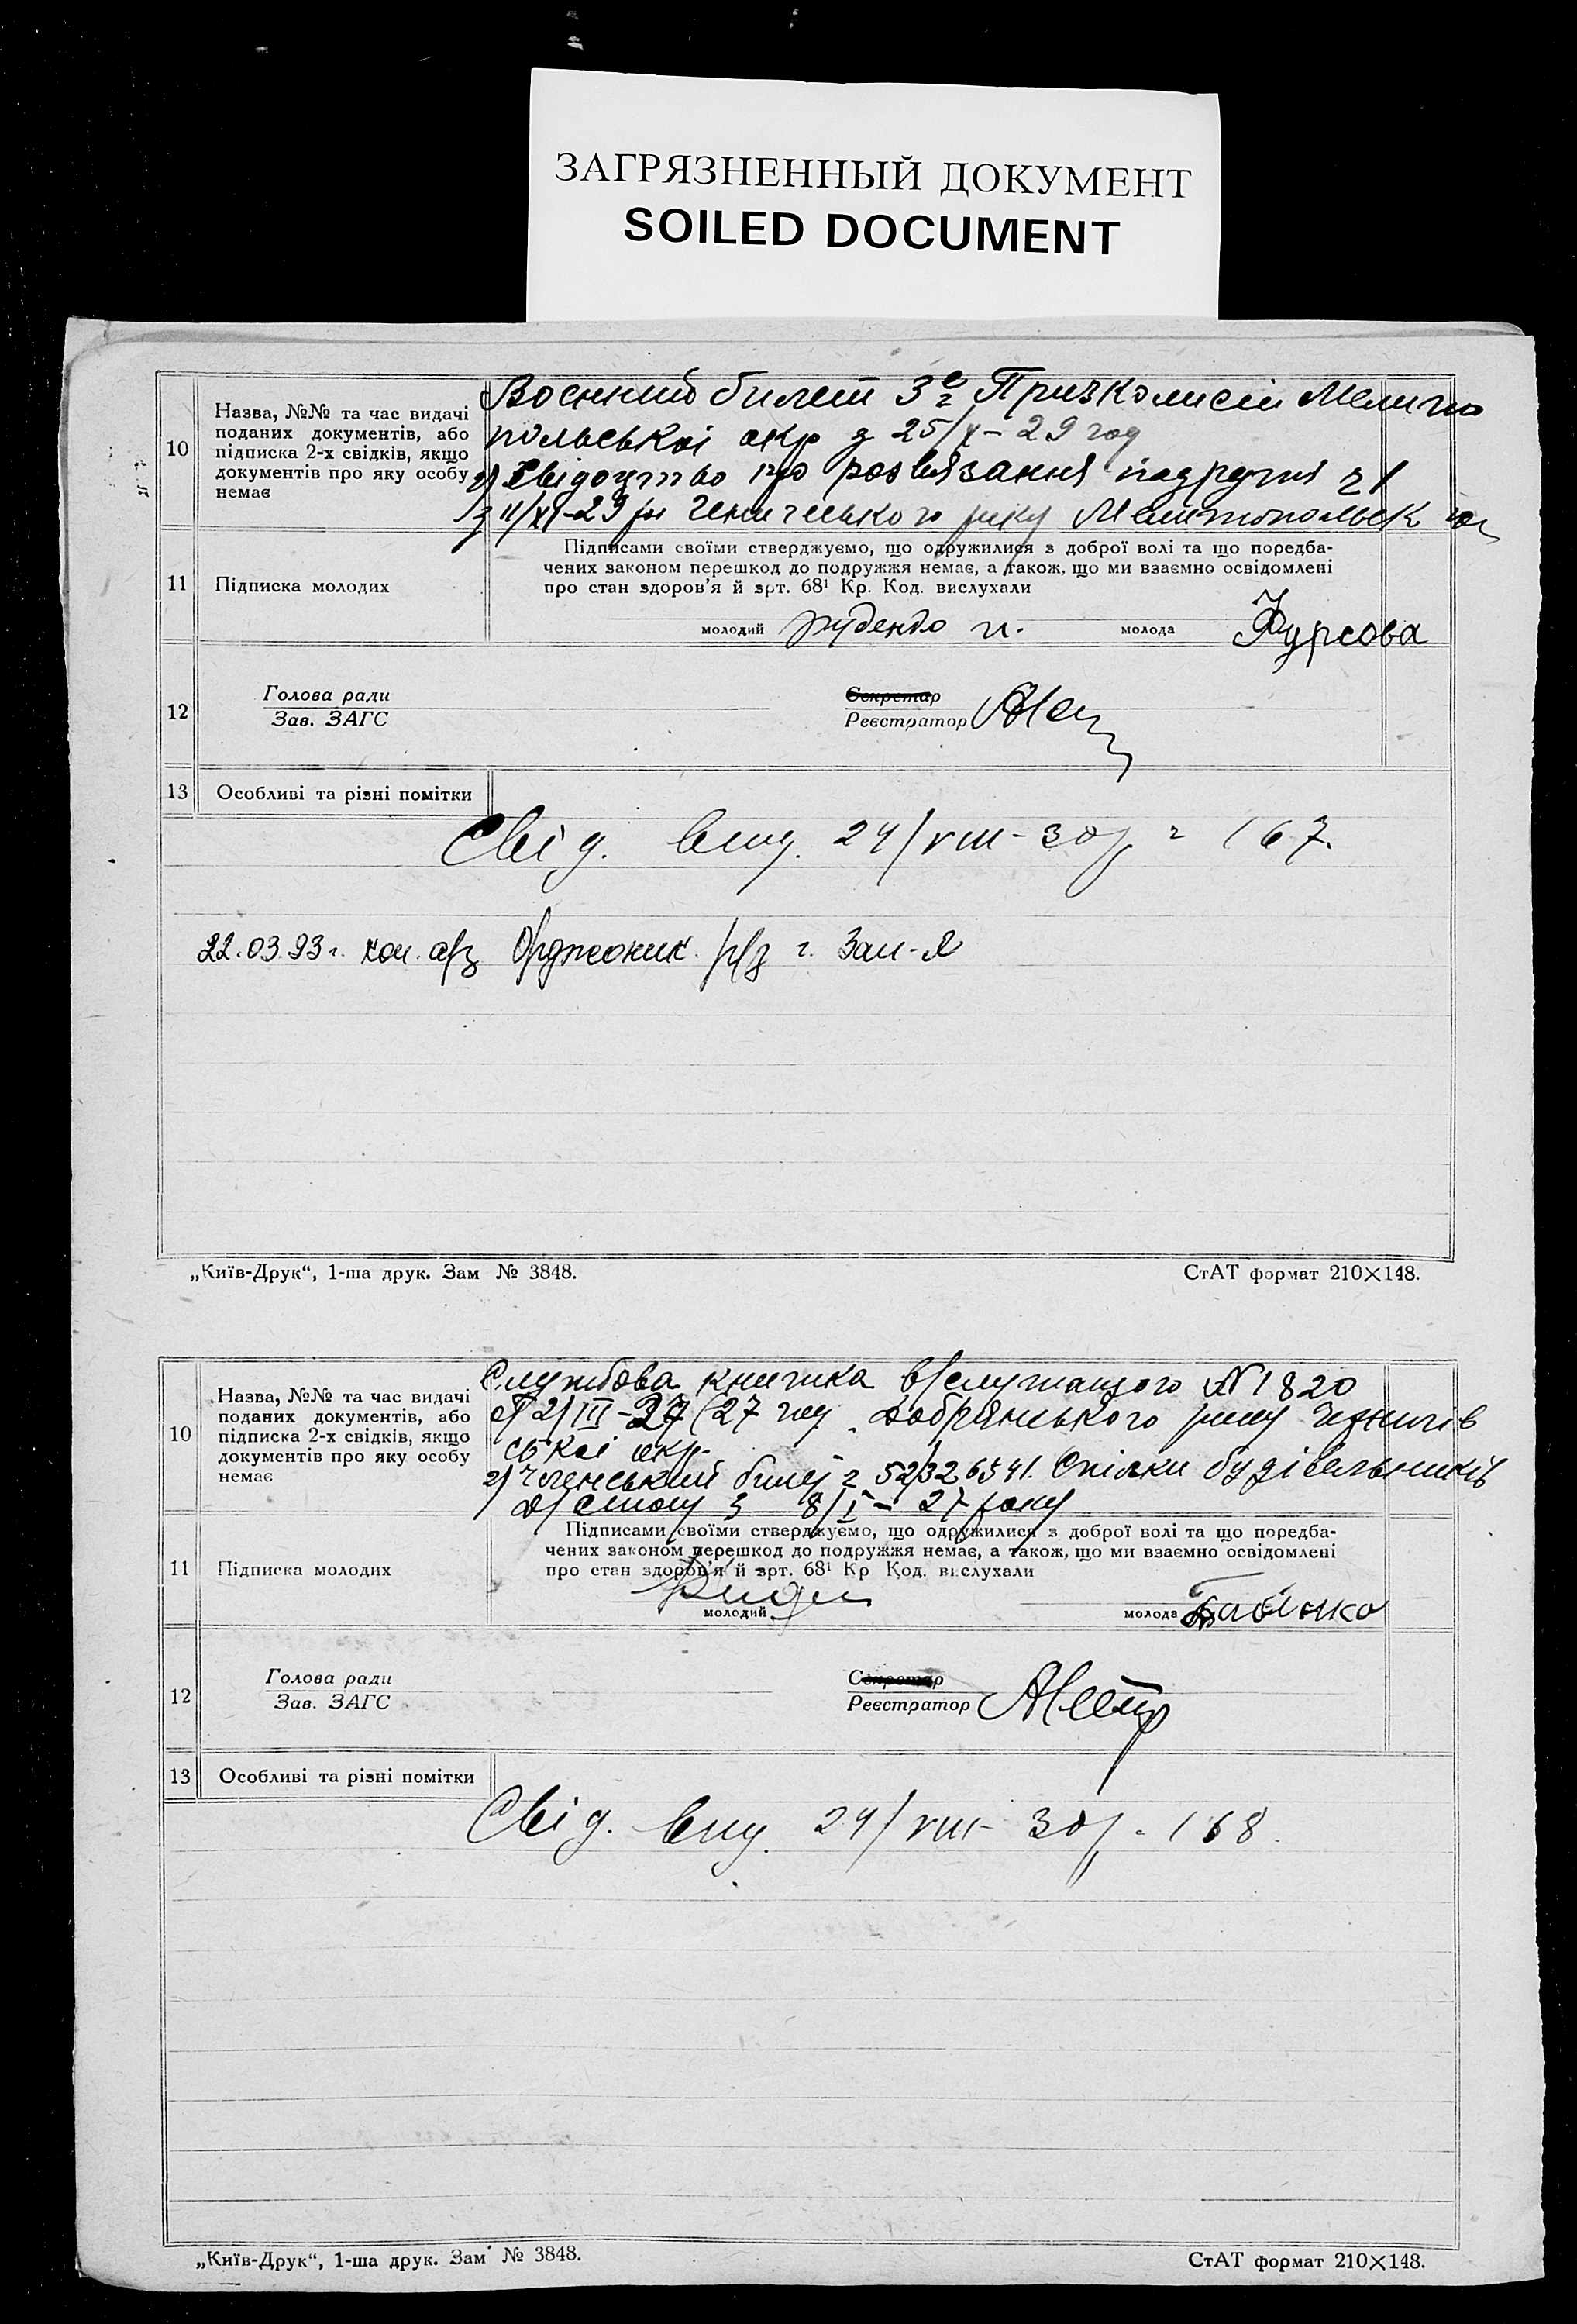 ЗАГРЯЗНЕННЫЙ ДОКУМЕНТ
SOILED DOCUMENT
10
Назва, №№ та час видачі
поданих документів, або
підписка 2-х свідків, якщо
документів про яку особу
немає
Воєнний билет 3 Призкомисіи Мелито
польської окр з 25/X-29 год
2) Свідоцтво про розвязання подружя
з 11/XI-29 р Генического Мелитопольськ
11
Підписка молодих
Підписами своїми стверджуємо, що одружилися з доброї волі та що поредба-
чених законом перешкод до подружжя немає, а також, що ми взаємно освідомлені
про стан здоров'я й зрт. 68¹ Кр. Код. вислухали
молодий
молода Фурсова
12
Голова ради
Зав. ЗАГС
Секретар
Реєстратор
13
Особливі та різні помітки
Свід. вид. 24/VIII-30 р 167.
22.03.93 г. коп. а/з Орджоник. р/з г. Зап-я
„Київ-Друк“, 1-ша друк. Зам № 3848.
СтАТ формат 210×148.
10
Назва, №№ та час видачі
поданих документів, або
підписка 2-х свідків, якщо
документів про яку особу
немає
Службова книжка в/служащого №1820
2/III-27 Добрянського Чернигів
ської окр.
2) Членський билет 52/326541. Спілки будівельників
з 8/I-27 року
11
Підписка молодих
Підписами своїми стверджуємо, що одружилися з доброї волі та що поредба-
чених законом перешкод до подружжя немає, а також, що ми взаємно освідомлені
про стан здоров'я й зрт. 68¹ Кр Код. вислухали
молодий
молода
12
Голова ради
Зав. ЗАГС
Секретар
Реєстратор
13
Особливі та різні помітки
Свід. вид. 24/VIII-30 р 168.
„Київ-Друк“, 1-ша друк. Зам № 3848.
СтАТ формат 210×148.